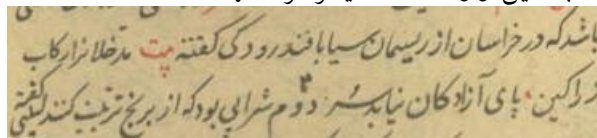 باشد که در خراسان از ریسمان سیا بافند رودکی گفته بیت مدخلانرا رکاب
زر اکین پای آزادکان نیابد سر دوم شرابی بود که از برنج ترتیب کنند لبیبی گفته